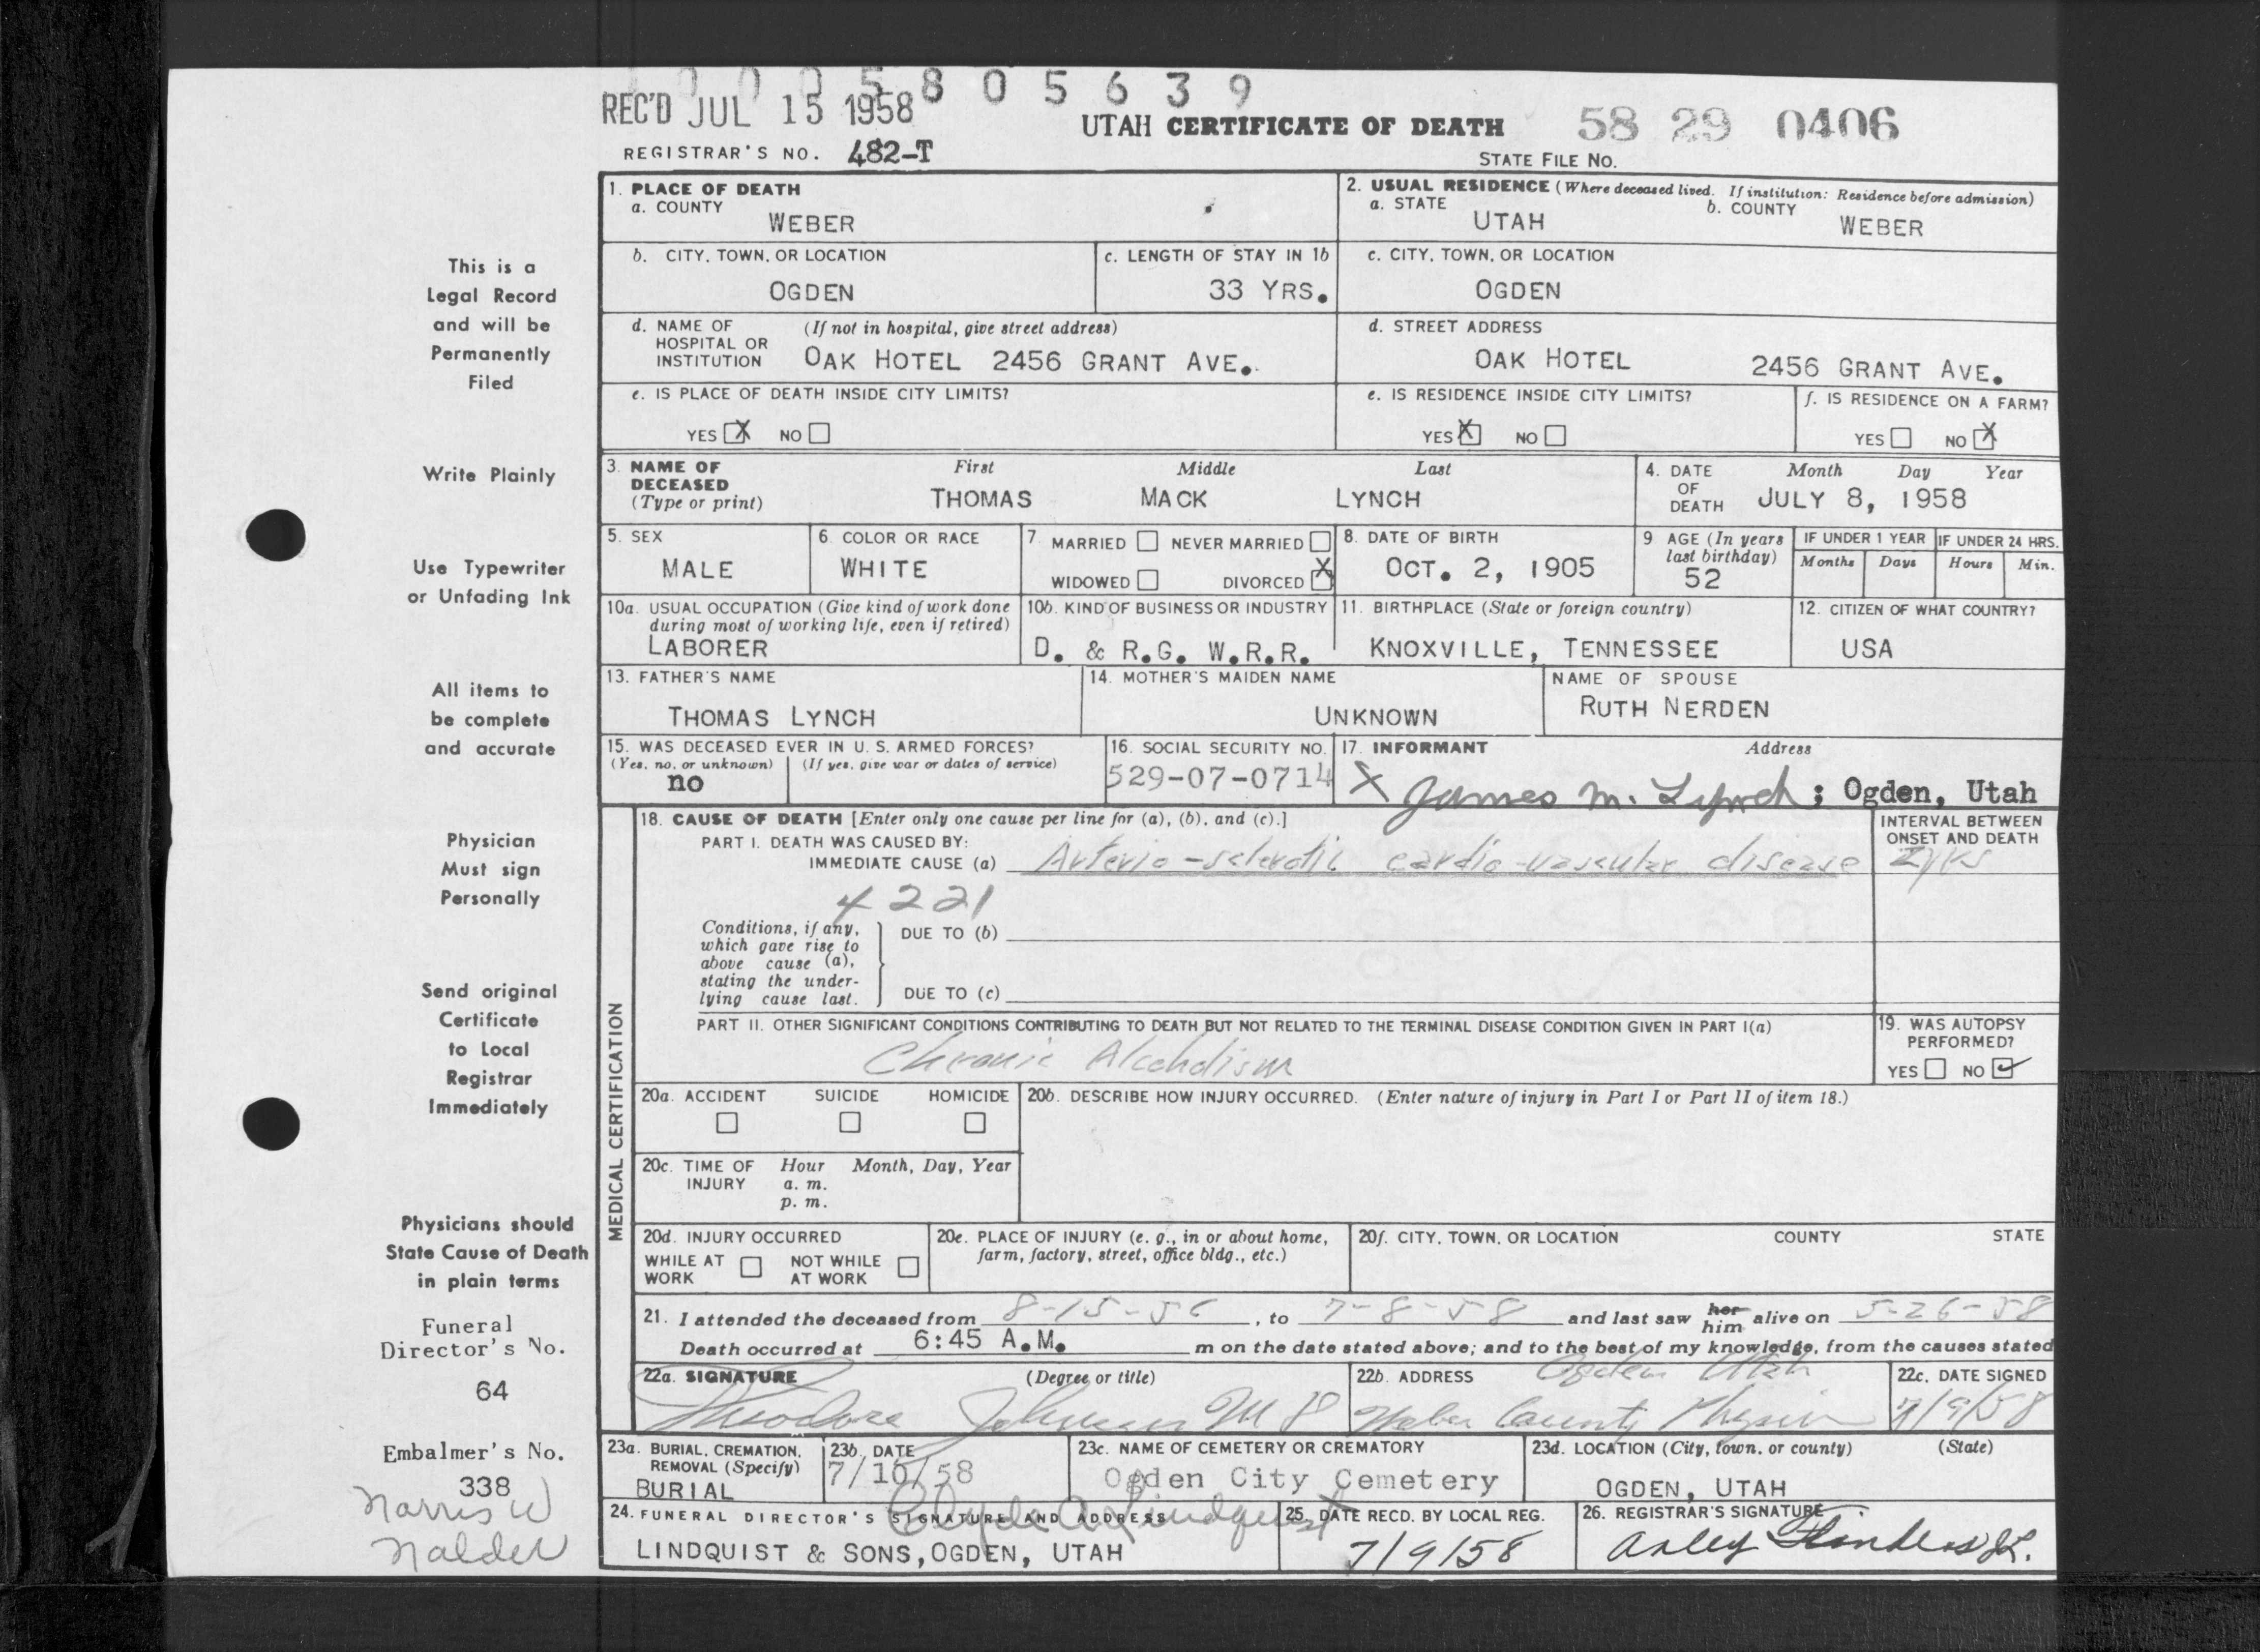 1005805639
REC'D JUL 15 1958
UTAH CERTIFICATE OF DEATH
58 29 0406
REGISTRAR'S NO. 482-T
STATE FILE NO.
1. PLACE OF DEATH
a. COUNTY
WEBER
2. USUAL RESIDENCE (Where deceased lived. If institution: Residence before admission)
a. STATE
UTAH
b. COUNTY
WEBER
b. CITY, TOWN, OR LOCATION
OGDEN
c. LENGTH OF STAY IN 1b
33 YRS.
c. CITY, TOWN, OR LOCATION
OGDEN
d. NAME OF HOSPITAL OR INSTITUTION
(If not in hospital, give street address)
OAK HOTEL 2456 GRANT AVE.
d. STREET ADDRESS
OAK HOTEL 2456 GRANT AVE.
e. IS PLACE OF DEATH INSIDE CITY LIMITS?
YES X NO
e. IS RESIDENCE INSIDE CITY LIMITS?
YES X NO
f. IS RESIDENCE ON A FARM?
YES NO X
3. NAME OF DECEASED
(Type or print)
First Middle Last
THOMAS MACK LYNCH
4. DATE OF DEATH
Month Day Year
JULY 8, 1958
5. SEX
MALE
6. COLOR OR RACE
WHITE
7. MARRIED NEVER MARRIED
WIDOWED DIVORCED X
8. DATE OF BIRTH
OCT. 2, 1905
9. AGE (In years last birthday)
52
IF UNDER 1 YEAR
Months Days
IF UNDER 24 HRS.
Hours Min.
10a. USUAL OCCUPATION (Give kind of work done during most of working life, even if retired)
LABORER
10b. KIND OF BUSINESS OR INDUSTRY
D. & R.G. W.R.R.
11. BIRTHPLACE (State or foreign country)
KNOXVILLE, TENNESSEE
12. CITIZEN OF WHAT COUNTRY?
USA
13. FATHER'S NAME
THOMAS LYNCH
14. MOTHER'S MAIDEN NAME
UNKNOWN
NAME OF SPOUSE
RUTH NERDEN
15. WAS DECEASED EVER IN U. S. ARMED FORCES?
(Yes, no, or unknown) (If yes, give war or dates of service)
no
16. SOCIAL SECURITY NO.
529-07-0714
17. INFORMANT Address
X James M. Lynch; Ogden, Utah
MEDICAL CERTIFICATION
18. CAUSE OF DEATH [Enter only one cause per line for (a), (b), and (c).]
INTERVAL BETWEEN ONSET AND DEATH
PART I. DEATH WAS CAUSED BY:
IMMEDIATE CAUSE (a) Arterio-sclerotic cardio-vascular disease 2 yrs
4221
Conditions, if any, which gave rise to above cause (a), stating the underlying cause last.
DUE TO (b)
DUE TO (c)
PART II. OTHER SIGNIFICANT CONDITIONS CONTRIBUTING TO DEATH BUT NOT RELATED TO THE TERMINAL DISEASE CONDITION GIVEN IN PART I(a)
Chronic Alcoholism
19. WAS AUTOPSY PERFORMED?
YES NO ✓
20a. ACCIDENT SUICIDE HOMICIDE
20b. DESCRIBE HOW INJURY OCCURRED. (Enter nature of injury in Part I or Part II of item 18.)
20c. TIME OF INJURY Hour Month, Day, Year
a. m.
p. m.
20d. INJURY OCCURRED
WHILE AT WORK NOT WHILE AT WORK
20e. PLACE OF INJURY (e. g., in or about home, farm, factory, street, office bldg., etc.)
20f. CITY, TOWN, OR LOCATION COUNTY STATE
21. I attended the deceased from 8-15-56, to 7-8-58 and last saw her him alive on 5-26-58
Death occurred at 6:45 A.M. m on the date stated above; and to the best of my knowledge, from the causes stated
22a. SIGNATURE (Degree or title)
Theodore Johnson MD
22b. ADDRESS
Ogden Utah
Weber County Physician
22c. DATE SIGNED
7/9/58
23a. BURIAL, CREMATION, REMOVAL (Specify)
BURIAL
23b. DATE
7/10/58
23c. NAME OF CEMETERY OR CREMATORY
Ogden City Cemetery
23d. LOCATION (City, town, or county) (State)
OGDEN, UTAH
24. FUNERAL DIRECTOR'S SIGNATURE AND ADDRESS
Clyde A Lindquist
LINDQUIST & SONS, OGDEN, UTAH
25. DATE RECD. BY LOCAL REG.
7/9/58
26. REGISTRAR'S SIGNATURE
This is a
Legal Record
and will be
Permanently
Filed
Write Plainly
Use Typewriter
or Unfading Ink
All items to
be complete
and accurate
Physician
Must sign
Personally
Send original
Certificate
to Local
Registrar
Immediately
Physicians should
State Cause of Death
in plain terms
Funeral
Director's No.
64
Embalmer's No.
338
Norris W
Nalder